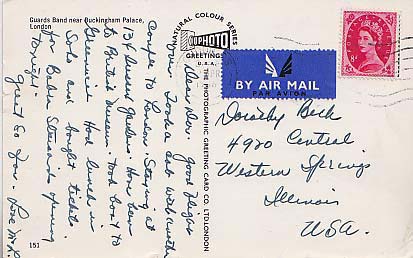 Guards Band near Buckingham Palace,
London
Dear Dor. Good flight
over. Took a cab with another
couple to London. Staying at
Sussex Gardens. Have been
to British Museum. Took boat to
Greenwich. Had lunch in
Soho and bought tickets
for opening
tonight.
Great so far. Love
151
NATURAL COLOUR SERIES
PHOTO
GREETINGS
U.S.A.
THE PHOTOGRAPHIC GREETING CARD CO. LTD. LONDON
BY AIR MAIL
PAR AVION
Dorothy Beck
4920 Central
Western Springs
Illinois
USA.
8d